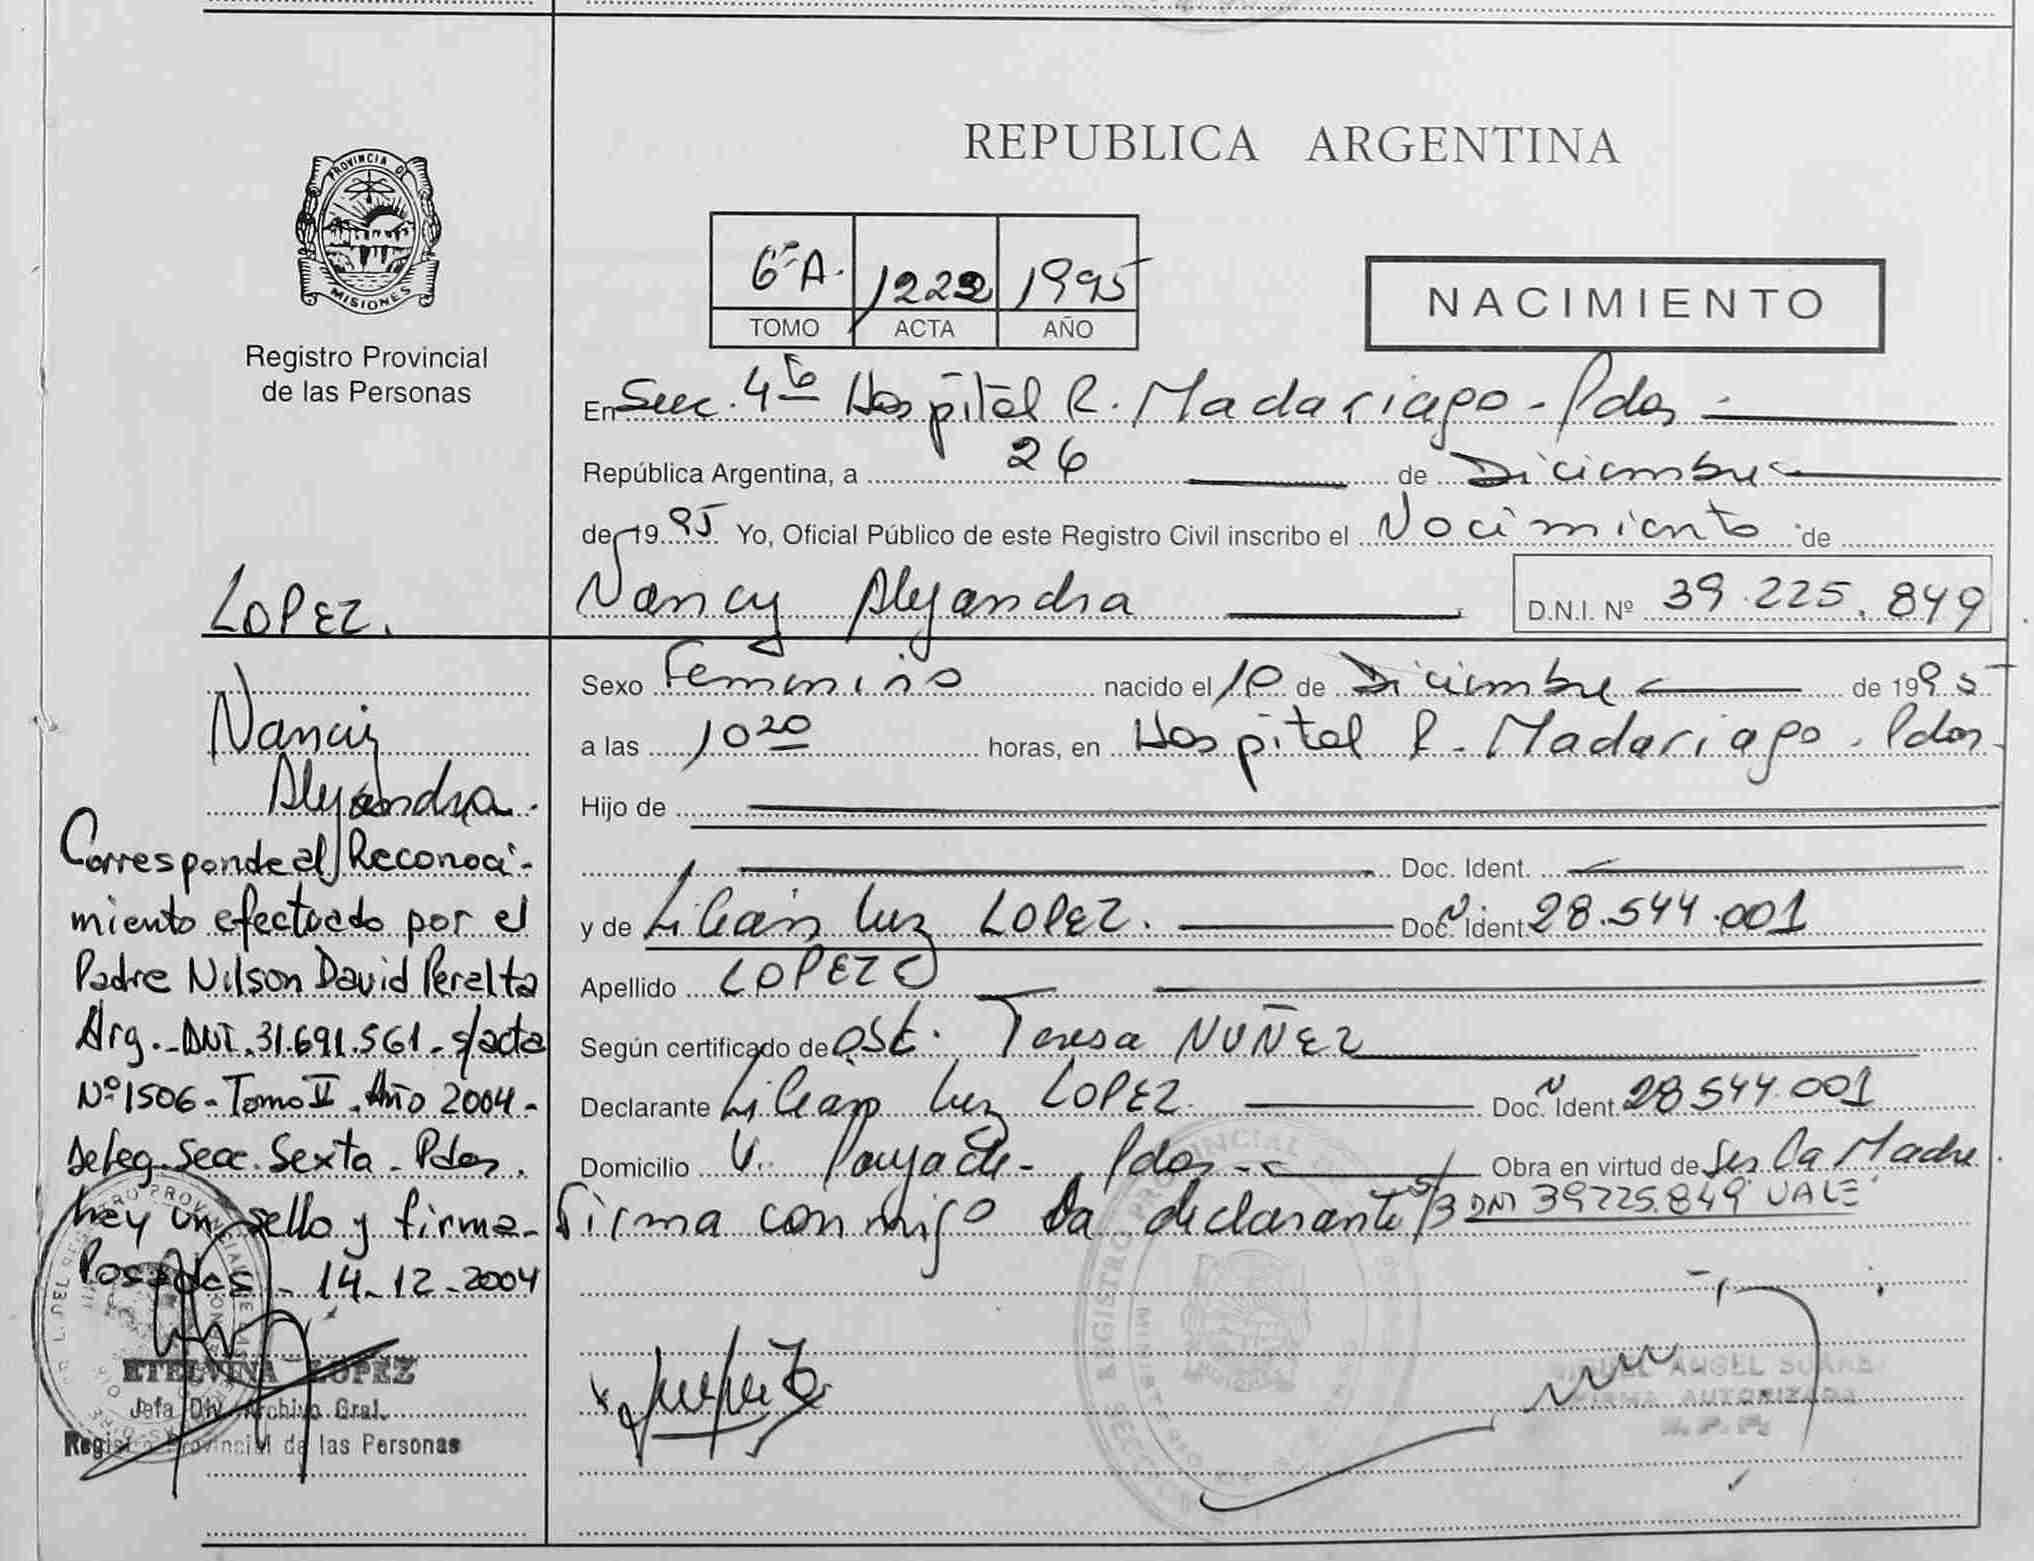 PROVINCIA DE
MISIONES
Registro Provincial
de las Personas
LOPEZ.
Nancy
Alejandra.
Corresponde al Reconoci-
miento efectuado por el
Padre Nilson David Peralta
Arg.-DNI.31.691.561.-s/acta
Nº1506-Tomo II.-Año 2004.-
Deleg.Secc.Sexta-Pdas.
hay un sello y firma.-
Posadas.-14-12-2004
ETELVINA LOPEZ
Jefa Div. Archivo Gral.
Registro Provincial de las Personas
REPUBLICA ARGENTINA
6ºA. 1222 1995
TOMO ACTA AÑO
NACIMIENTO
En Secc. 4ta Hospital R. Madariaga - Pdas -
República Argentina, a 26 de Diciembre
de 1995 Yo, Oficial Público de este Registro Civil inscribo el Nacimiento de
Nancy Alejandra D.N.I. Nº 39.225.849
Sexo Femenino nacido el 10 de Diciembre de 1995
a las 10 20 horas, en Hospital R. Madariaga. Pdas-
Hijo de
Doc. Ident.
y de Lilian Luz LOPEZ. Doc. Ident. Nº 28.544.001
Apellido LOPEZ
Según certificado de Obst. Teresa NUÑEZ
Declarante Lilian Luz LOPEZ. Doc. Ident. Nº 28.544.001
Domicilio V. Pdas- Obra en virtud de Ser La Madre.
Firma conmigo La declarante S/B DNI 39225.849 VALE
MIGUEL ANGEL SUAREZ
FIRMA AUTORIZADA
R. P. P.